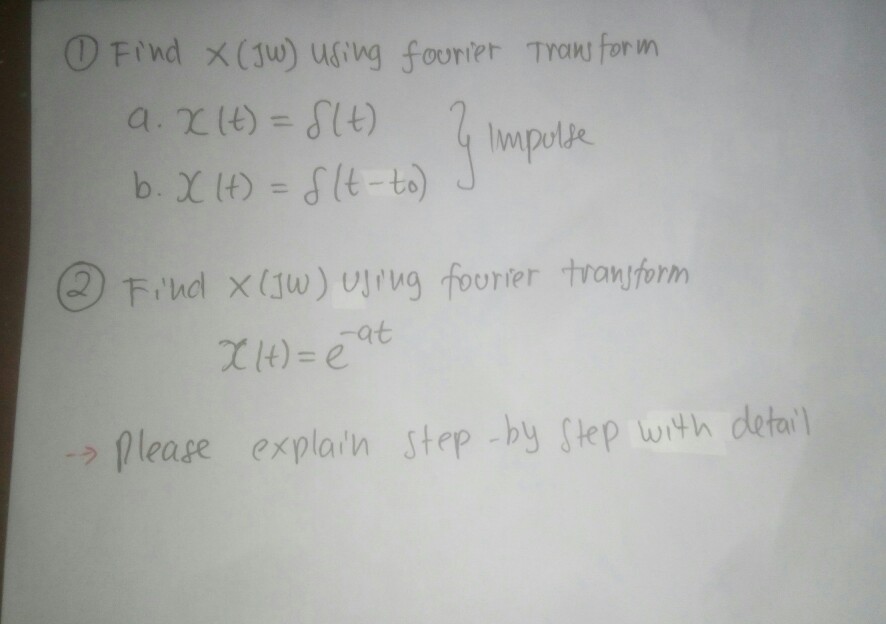 ① Find X(jw) using fourier Transform
a. x(t) = δ(t)
} Impulse
b. x(t) = δ(t-t₀)
② Find X(jw) using fourier transform
x(t) = e⁻ᵃᵗ
→ please explain step-by step with detail